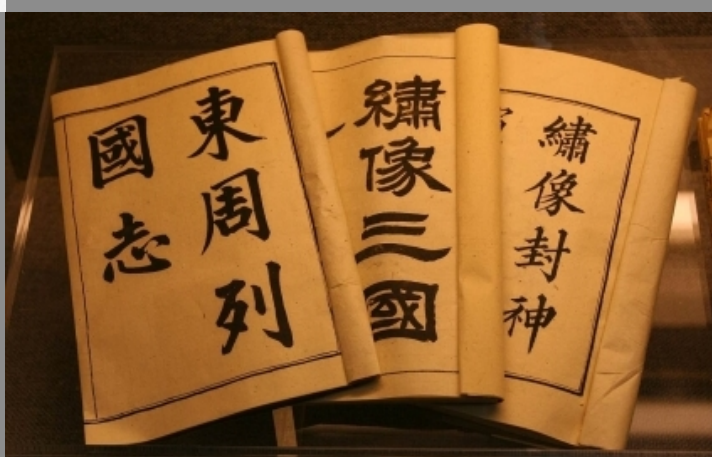 東周列
國志
繡像三國
繡像封神